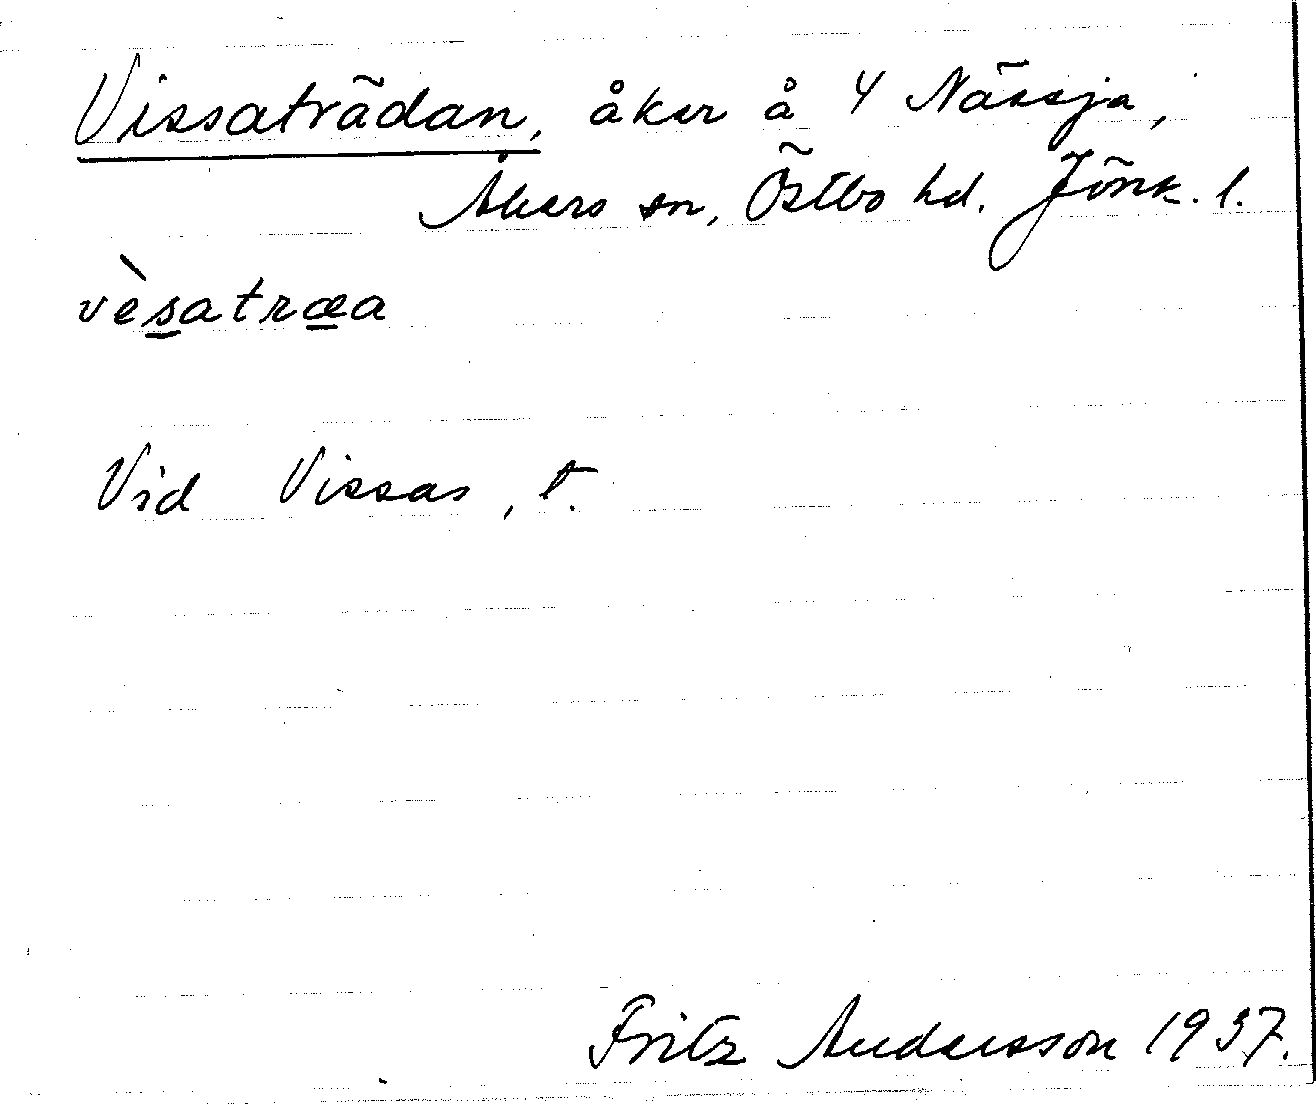 Vissaträdan, åker å Y Nässja,
Åkers sn, Östbo hd. Jönk. l.
vèsatræa
Vid Vissas, t.
Fritz Andersson 1937.